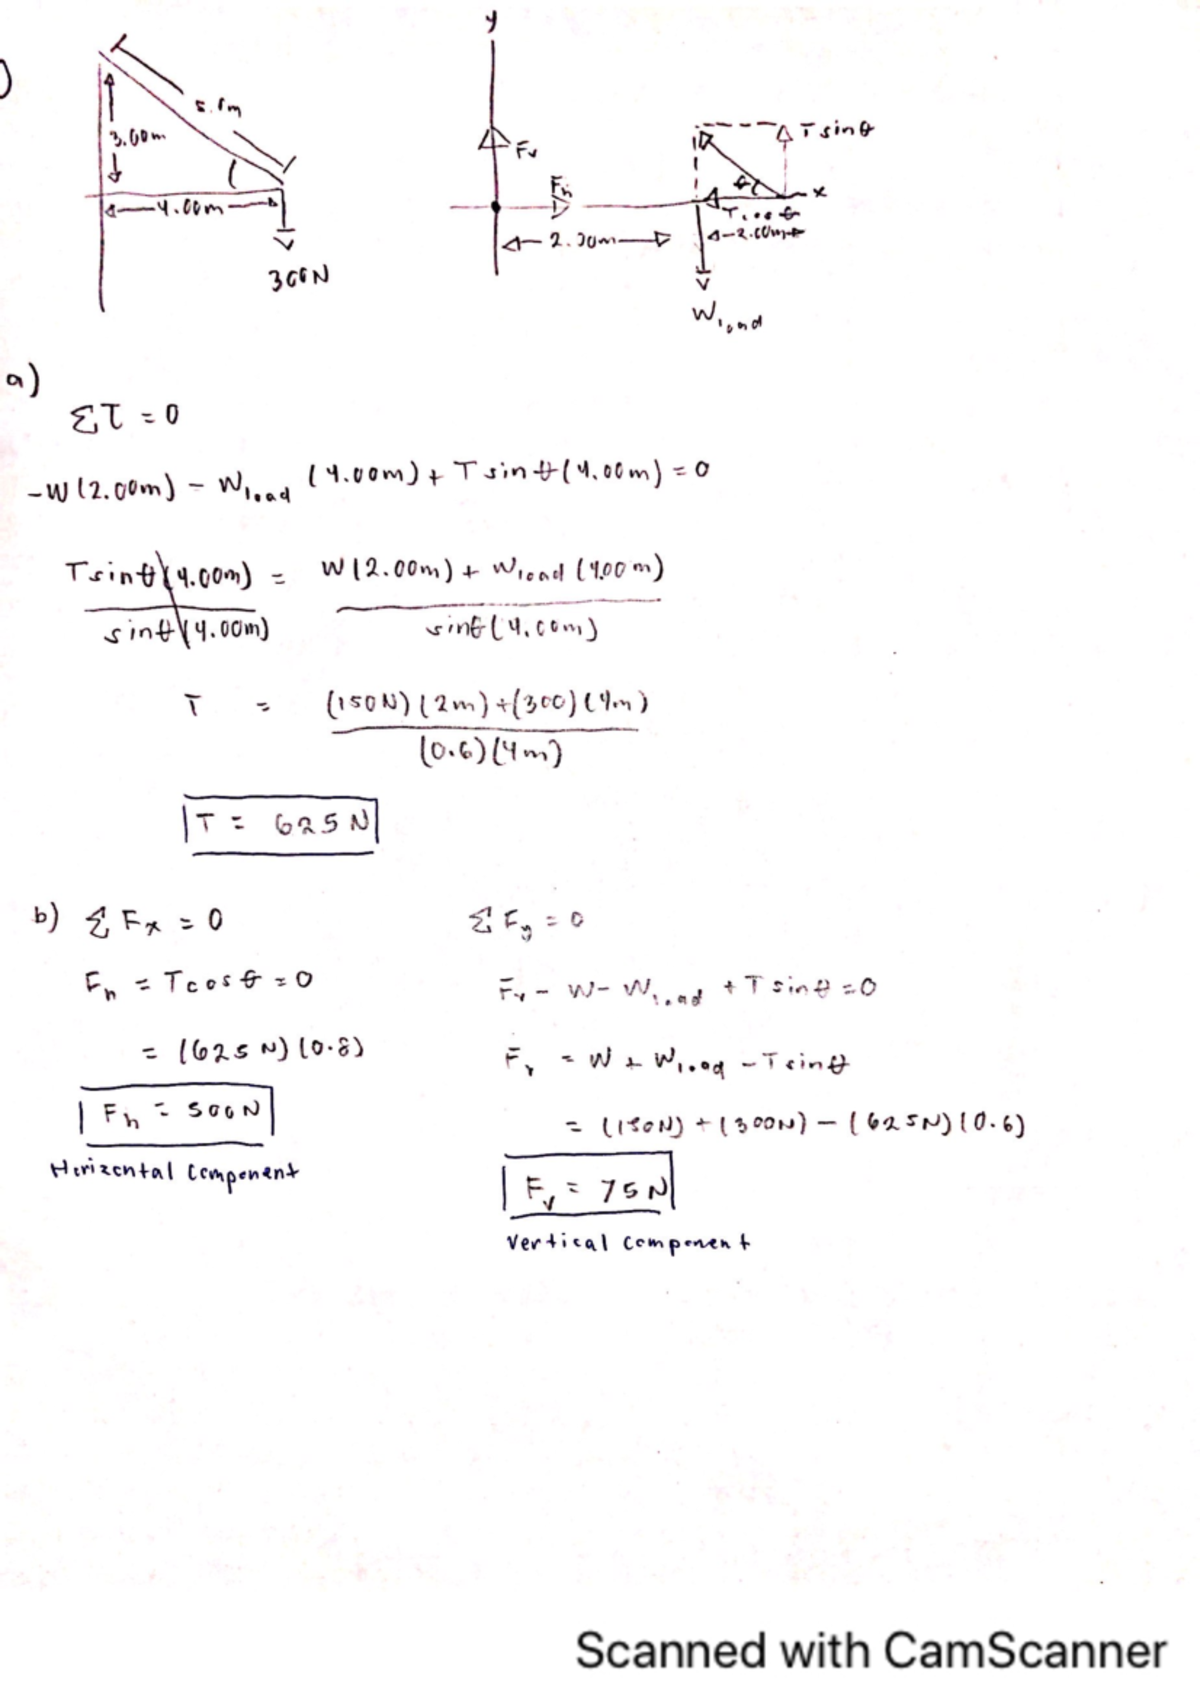 )
5.0m
3.00m
4.00m
300N
y
Fv
Fh
T sinθ
θ
x
Tcosθ
2.00m
2.00m
Wload
a)
Στ = 0
-W(2.00m) - Wload (4.00m) + T sinθ(4.00m) = 0
Tsinθ(4.00m) = W(2.00m) + Wload (4.00m)
sinθ(4.00m) sinθ(4.00m)
T = (150N)(2m)+(300)(4m)
(0.6)(4m)
T = 625 N
b) ΣFx = 0
Fh = Tcosθ = 0
= (625 N)(0.8)
Fh = 500N
Horizontal Component
ΣFy = 0
Fv - W - Wload + T sinθ = 0
Fv = W + Wload - Tsinθ
= (150N) + (300N) - (625N)(0.6)
Fv = 75 N
Vertical Component
Scanned with CamScanner